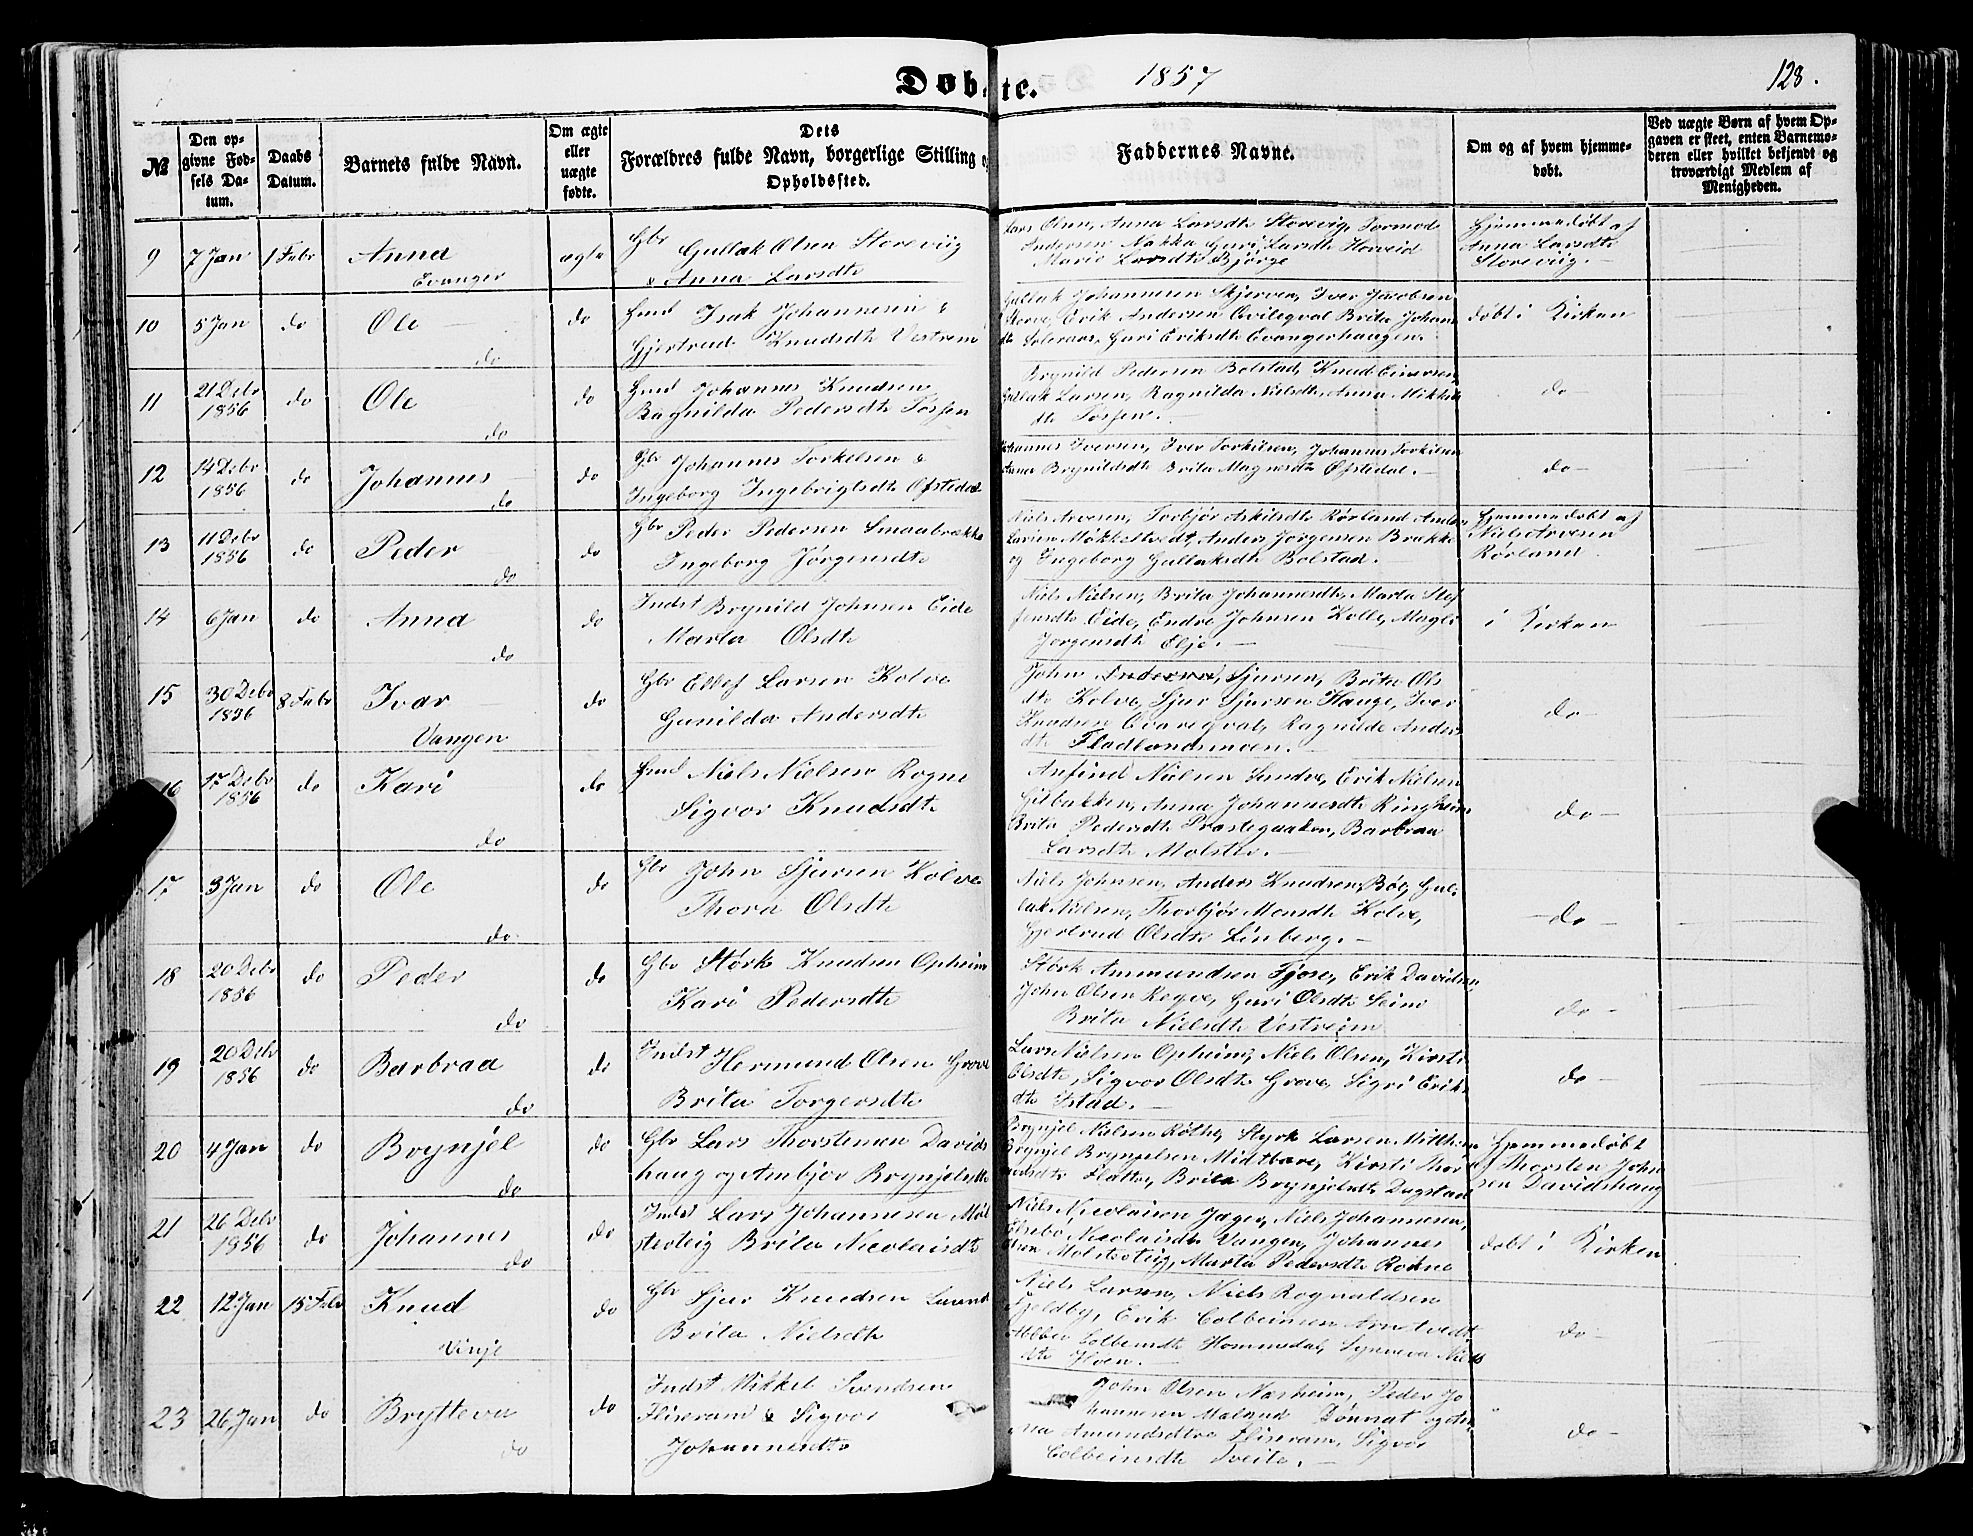 Døbte.
1857
128.
№
Den opgivne Fødsels Datum.
Daabs Datum.
Barnets fulde Navn.
Om ægte eller uægte fødte.
Dets Forældres fulde Navn, borgerlige Stilling o
Opholdssted.
Faddernes Navne.
Om og af hvem hjemmedøbt.
Ved uægte Børn af hvem Opgaven er skeet, enten Barnemoderen eller hvilket bekjendt og troværdigt Medlem af Menigheden.
9 7 Jan 1 Febr Anna ægte Gbr Gullak Olsen Storeviig
Evanger & Anna Larsdte
Lars Olsen, Anna Larsdte Storevig, Tormod
Andersen Nakka Guri Larsdte Horveid
Marie Larsdte Bjørge
Hjemmedøbt af
Anna Larsdte
Storeviig.
10 5 Jan do Ole do Huusd Isak Johannesen &
do Gjertrud Knudsdte Vestrem
Gullak Johannesen Skjerven, Iver Jacobsen
Horve, Erik Andersen Evitegval Brita Johans
dte Soleraas, Guri Eriksdte Evangerhaugen.
døbt i Kirken
11 21 Debr 1856 do Ole do Huusd Johannes Knudsen
do Ragnilda Pedersdte Fosse
Brynild Pedersen Bolstad, Knud Einarsen,
Gullak Larsen, Ragnilda Nielsdte Anna Mikkels
dte Fosse.
do
12 14 Debr 1856 do Johannes do Gbr Johannes Torkelsen &
do Ingeborg Ingebrigtsdte Øfstedal
Johannes Iversen, Iver Torkilsen, Johannes Torkilsen
Anna Brynildsdte Brita Magnesdte Øfstedal.
do
13 11 Debr 1856 do Peder do Gbr Peder Pedersen Smaabrække
do Ingeborg Jørgensdte
Niels Arvesen, Torbjør Askilsdte Rørland Anders
Larsen Møkkestvedt, Anders Jørgensen Brække
og Ingeborg Gullaksdte Bolstad.
Hjemmedøbt af
Niels Arvesen
Rørland.
14 6 Jan do Anna do Indst Brynild Johnsen Eide
do Marta Olsdte
Niels Nielsen, Brita Johannesdte, Marta Stef
fensdte Eide, Endre Johnsen Kolle, Magli
Jørgensdte Elje.
i Kirken
15 30 Debr 1856 8 Febr Ivar do Gbr Ellef Larsen Kolve
Vangen Gunilda Andersdte
John Sjursen, Brita Ols
dte Kolve, Sjur Sjursen Hauge, Iver
Knudsen Qvaregval, Ragnilde Anders
dte Fladlandsmoen.
do
16 17 Debr 1856 do Kari do Huusd Niels Nielsen Rogne
do Sigvor Knudsdte
Anfind Nielsen Sundve, Erik Nielsen
Gilbakken, Anna Johannesdte Ringheim
Brita Pedersdte Præstegaarden, Barbraa
Larsdte Molster.
do
17 3 Jan do Ole do Gbr John Sjursen Kolve
do Thora Olsdte
Niels Johnsen, Anders Knudsen Bøe, Gul
lak Nielsen, Thorbjør Monsdte Kolve,
Gjertrud Olsdte Linberg.
do
18 20 Debr 1856 do Peder do Gbr Størk Knudsen Opheim
do Kari Pedersdte
Størk Ammundsen Tjose, Erik Davidsen,
John Olsen Regve, Guri Olsdte Seim
Brita Nielsdte Vestreim
do
19 20 Debr 1856 do Barbraa do Indst Hermund Olsen Grove
do Brita Torgersdte
Lars Nielsen Opheim, Niels Olsen, Kirsti
Olsdte, Sigvor Olsdte Grove, Sigri Erik
dte Istad.
do
20 4 Jan do Brynjel do Gbr Lars Thorstensen Davids
do haug og Ambjør Brynjelsdte
Brynjel Nielsen Røthe, Styrk Larsen Mitthun
Brynjel Brynjelsen Midtbøre, Kirsti Thor
sdte Flatte, Brita Brynjelsdte Dagstad
Hjemmedøbt
af Thorsten John
sen Davidshaug
21 26 Debr 1856 do Johannes do Indst Lars Johannesen Mol
do sterteig Brita Nicolaisdte
Niels Nicolaisen Jager, Niels Johannesen,
Elsebe Nicolaisdte Vangen, Johannes
Olsen Molsterteig, Marta Pedersdte Rokne
døbt i Kirken
22 12 Jan 15 Febr Knud do Gbr Sjur Knudsen
Vinje Brita Nielsdte
Niels Larsen, Niels Rognaldsen
Fjeldby, Erik Colbeinsen Arnetvedt
Colbeinsdte Hommedal, Synneva Niels
dte Hoen.
do
23 26 Jan do Brytteva do Indst Mikkel Svendsen
do Fliseram & Sigvor
Johannesdte
John Olsen Næsheim, Peder Jo
hannesen Maland Dønnat
Amundsdte Fliseram, Sigvor
Colbeinsdte Tveite.
do